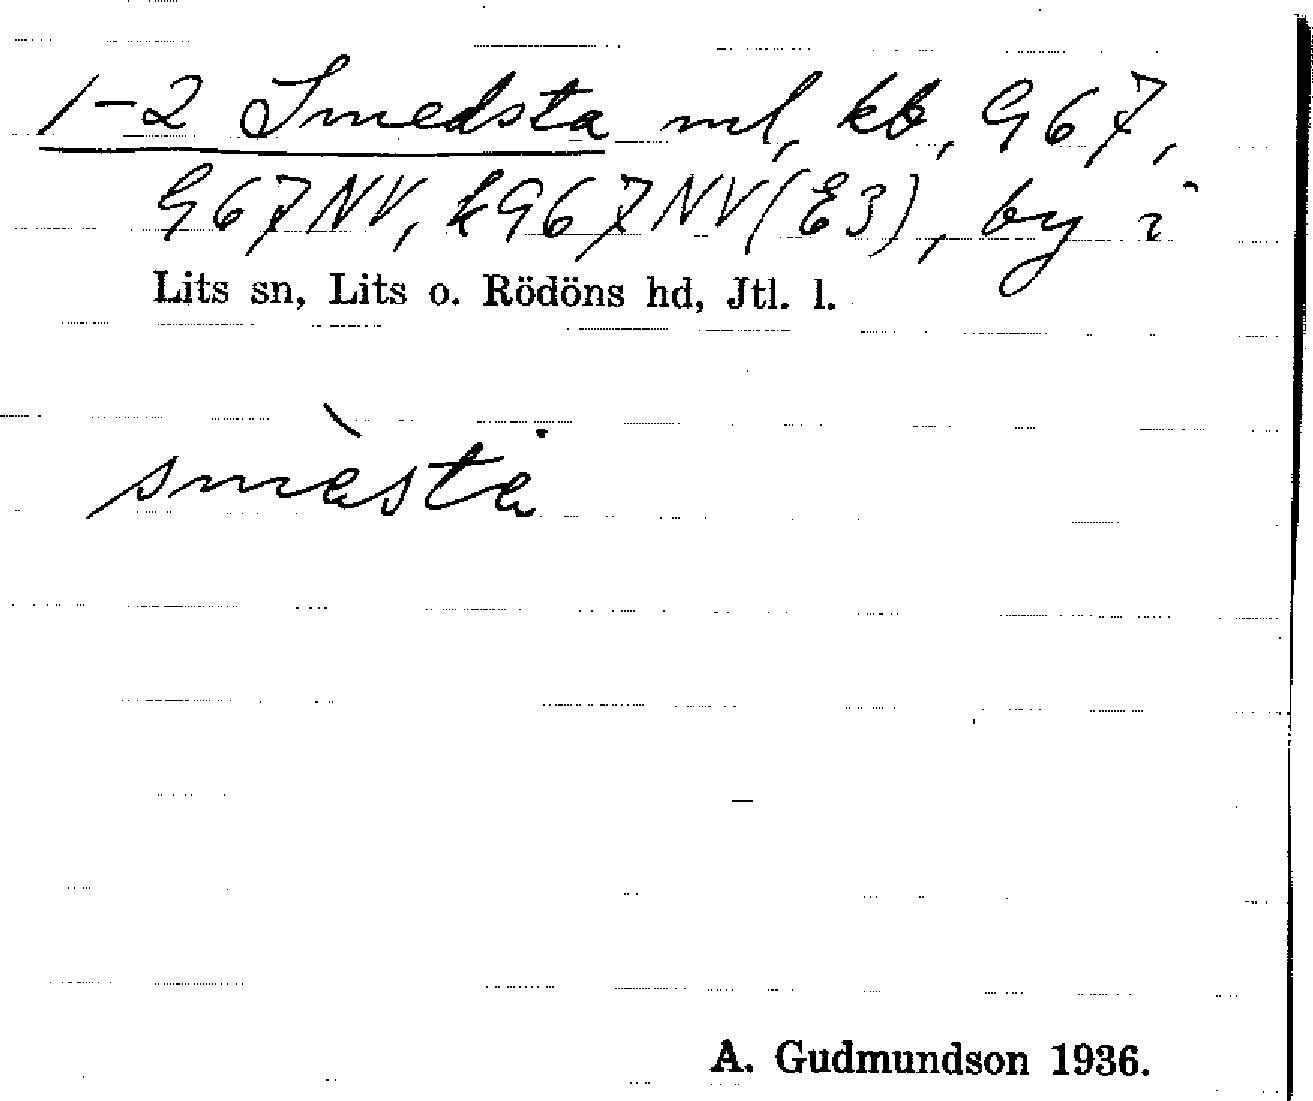 1-2 Smedsta ml, kb, G67,
G67NV, kG67NV(E3), by i
Lits sn, Lits o. Rödöns hd, Jtl. l.
A. Gudmundson 1936.